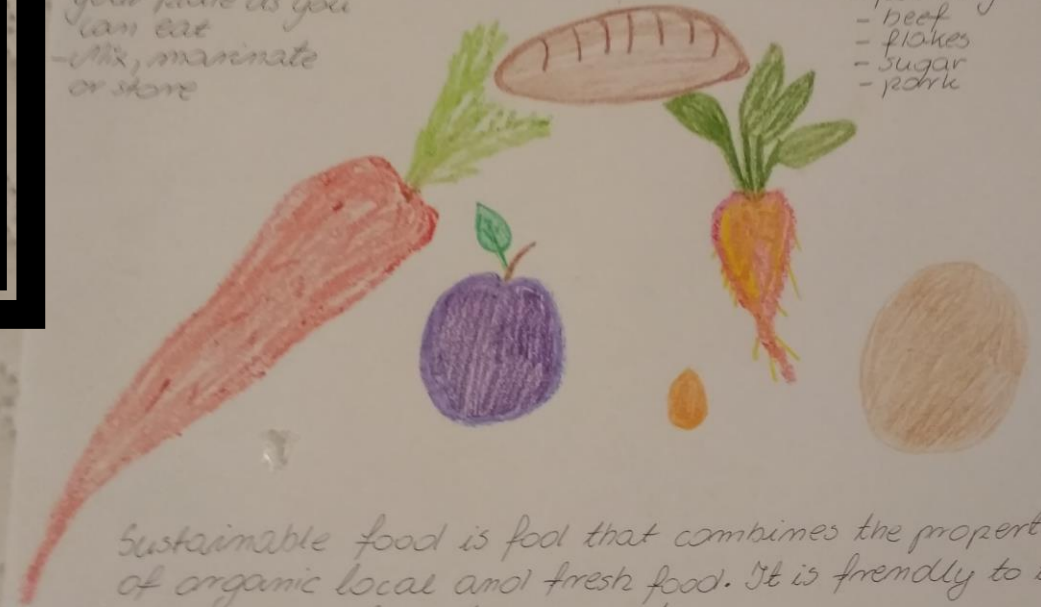 can eat
-Mix, marinate
or store
- beef
- flakes
- sugar
- pork
Sustainable food is food that combines the propert
of organic local and fresh food. It is frendly to